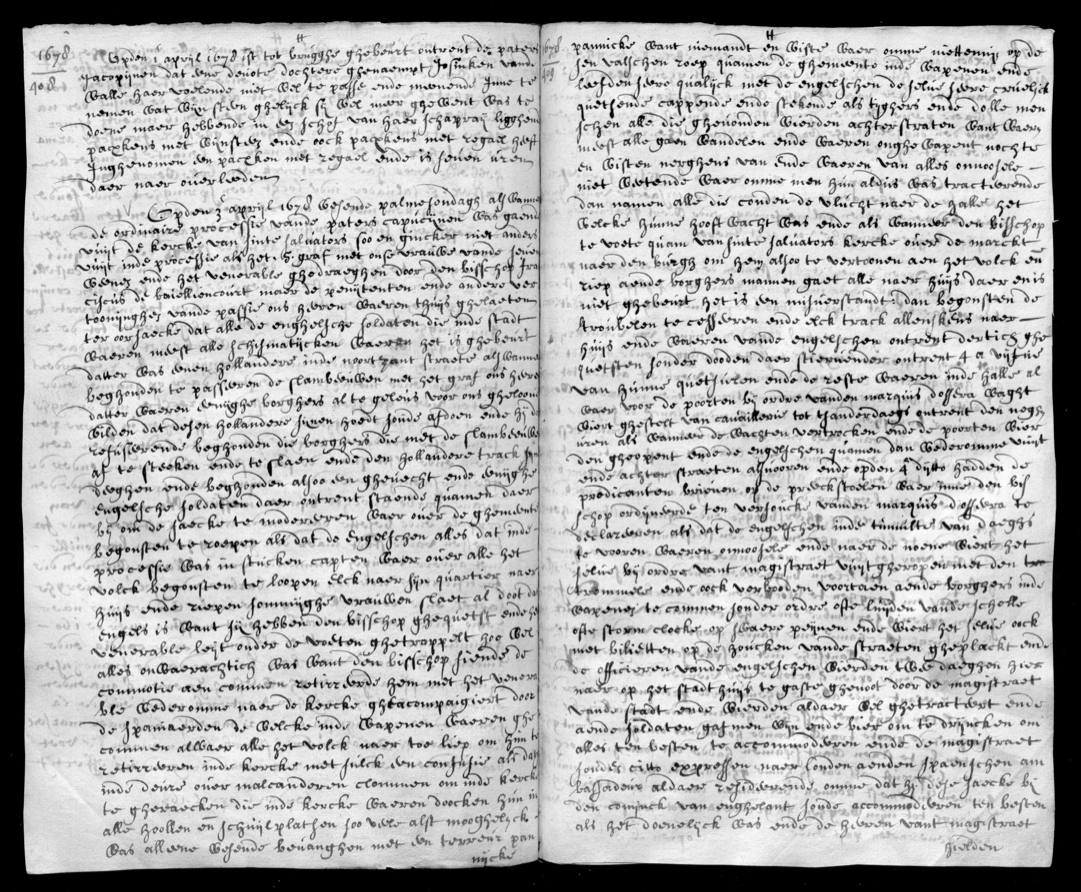 1678
408
Opden 1 aprijl 1678 ist tot brugghe ghebeurt ontrent de paters
Jacopijnen dat eene devote dochtere ghenaempt Josijnken vande
walle haer voelende niet wel te passe ende meenende inne te
nemen wat wijnsteen ghelijck sij wel meer ghewent was te
doene maer hebbende in een schof van haer schapraij ligghende
packxkens met wijnsteen ende oock packxkens met regael heeft
Inghenomen een packxken met regael ende is seven uren
daer naer overleeden
Opden 3 aprijl 1678 wesende palmesondagh als wannee
de ordinaire processie vande paters capucijnen was gaende
vuijt de kercke van sinte salvators soo en gincker niet anders
vuijt inde processie als het h. graf met onse vrauwe vande seven
ween ende het venerable ghedraeghen door den bisschop fran
ciscus de baillencourt maer de penijtenten ende andere ver
tooninghen vande passie ons heeren waeren thuijs ghelaeten
ter oorsaecke dat alle de enghelsche soldaten die inde stadt
waeren meest alle schismatijcken waeren het is ghebeurt
datter was eenen hollandere inde noortzant straete als wannee
beghonden te passeren de flambeeuwen met het graf ons heere
datter waeren eenighe borghers al te geleus voor ons gheloove
wilden dat desen hollandere sijnen hoedt soude afdoen ende hij dit
refuserende beghonden die borghers die met de flambeeuwen
af te steeken ende te slaen ende den hollandere track sijn
deeghen ende beghonden alsoo een ghevecht ende eenighe
engelsche soldaten daer ontrent staende quamen daer
bij om de saecke te modereren waer over de ghemeente
begonsten te roepen als dat de engelschen alles dat inde
processie was in stucken capten waer over alle het
volck begonsten te loopen elck naer sijn quartier naer
huijs ende riepen sommijghe vrauwen slaet al doot dat
engels is want sij hebben den bisschop ghequetst ende het
venerable leijt onder de voeten ghetrappelt hoe wel
alles onwaerachtich was want den bisschop siende de
commotie aen commen retireerde hem met het venera
ble wederomme naer de kercke gheacompaigniert door
de spaniaerden de welcke inde wapenen waeren ghe
commen alwaer alle het volck naer toe liep om hun te
retireeren inde kercke met sulck een confusie als dat
inde deure over malcanderen clommen om inde kercke
te gheraecken die inde kercke waeren doocken hun in
alle hoollen en schuijlplathen soo veele alst mooghelijck
was alleene wesende bevanghen met een terreur pan
nijcke
1678
409
pannicke want niemandt en wiste waer omme niettemin op de
sen valschen roep quamen de ghemeente inde wapenen ende
leefden seere qualijck met de engelschen de selve seere cruelijck
quetsende cappende ende stekende als tijghers ende dolle men
schen alle die ghevonden wierden achter straten want waeren
meest alle gaen wandelen ende waeren onghewapent nochte
en wisten nerghens van ende waeren van alles onnoosele
niet wetende waer omme men hun aldus was tracterende
dan namen alle die conden de vlucht naer de halle het
welcke hunne hooft wacht was ende als wanneer den bisschop
te voete quam van sinte salvators kercke over de marckt
naer den burgh om hem alsoo te vertoonen aen het volck en
riep aende borghers mannen gaet alle naer huijs daer en is
niet ghebeurt het is een misverstandt dan begonsten de
troubelen te cesseren ende elck track allenskens naer
huijs ende waeren vande engelschen ontrent dertich ghe
quetsten sonder dooden daer stiervender ontrent 4 a vijfve
van hunne quetsuren ende de reste waeren inde halle al
waer voor de poorten bij ordre vanden marquis dossera waght
wiert ghestelt van cavaillerie tot sanderdaegs ontrent den negh
uren als wanneer de wachten vertrocken ende de poorten wier
den gheopent ende de engelschen quamen dan wederomme vuijt
ende achter straeten als vooren ende opden 4 dijto hadden de
predicanten brieven op de preeckstoelen waer inne den bis
schop ordijneerde ten versoucke vanden marquis dossera te
declareren als dat de engelschen inde tumulte van daeghs
te vooren waeren onnoosele ende naer de noene wiert het
selve bij ordre vant magistraet vuijtgheroepen met den
trommele ende oock verboden voortaen aende borghers inde
wapenen te commen sonder ordre ofte luijden vande scholle
ofte storm clocke op swaere peijnen ende wiert het selve oock
met billetten op de houcken vande straeten gheplackt ende
de officieren vande engelschen wierden twee daeghen hier
naer op het stadt huijs te gaste ghenoot door de magistraet
vande stadt ende wierden aldaer wel ghetracteert ende
aende soldaten gaf men wijn ende bier om te drijncken om
alles ten besten te accommoderen ende de magistraet
sonden citto expressen naer londen aenden spaenschen am
bassadeur aldaer residerende omme dat hij dese saecke bij
den conijnck van enghelant soude accommoderen ten besten
als het doenelijck was ende de heeren vant magistraet
hielden